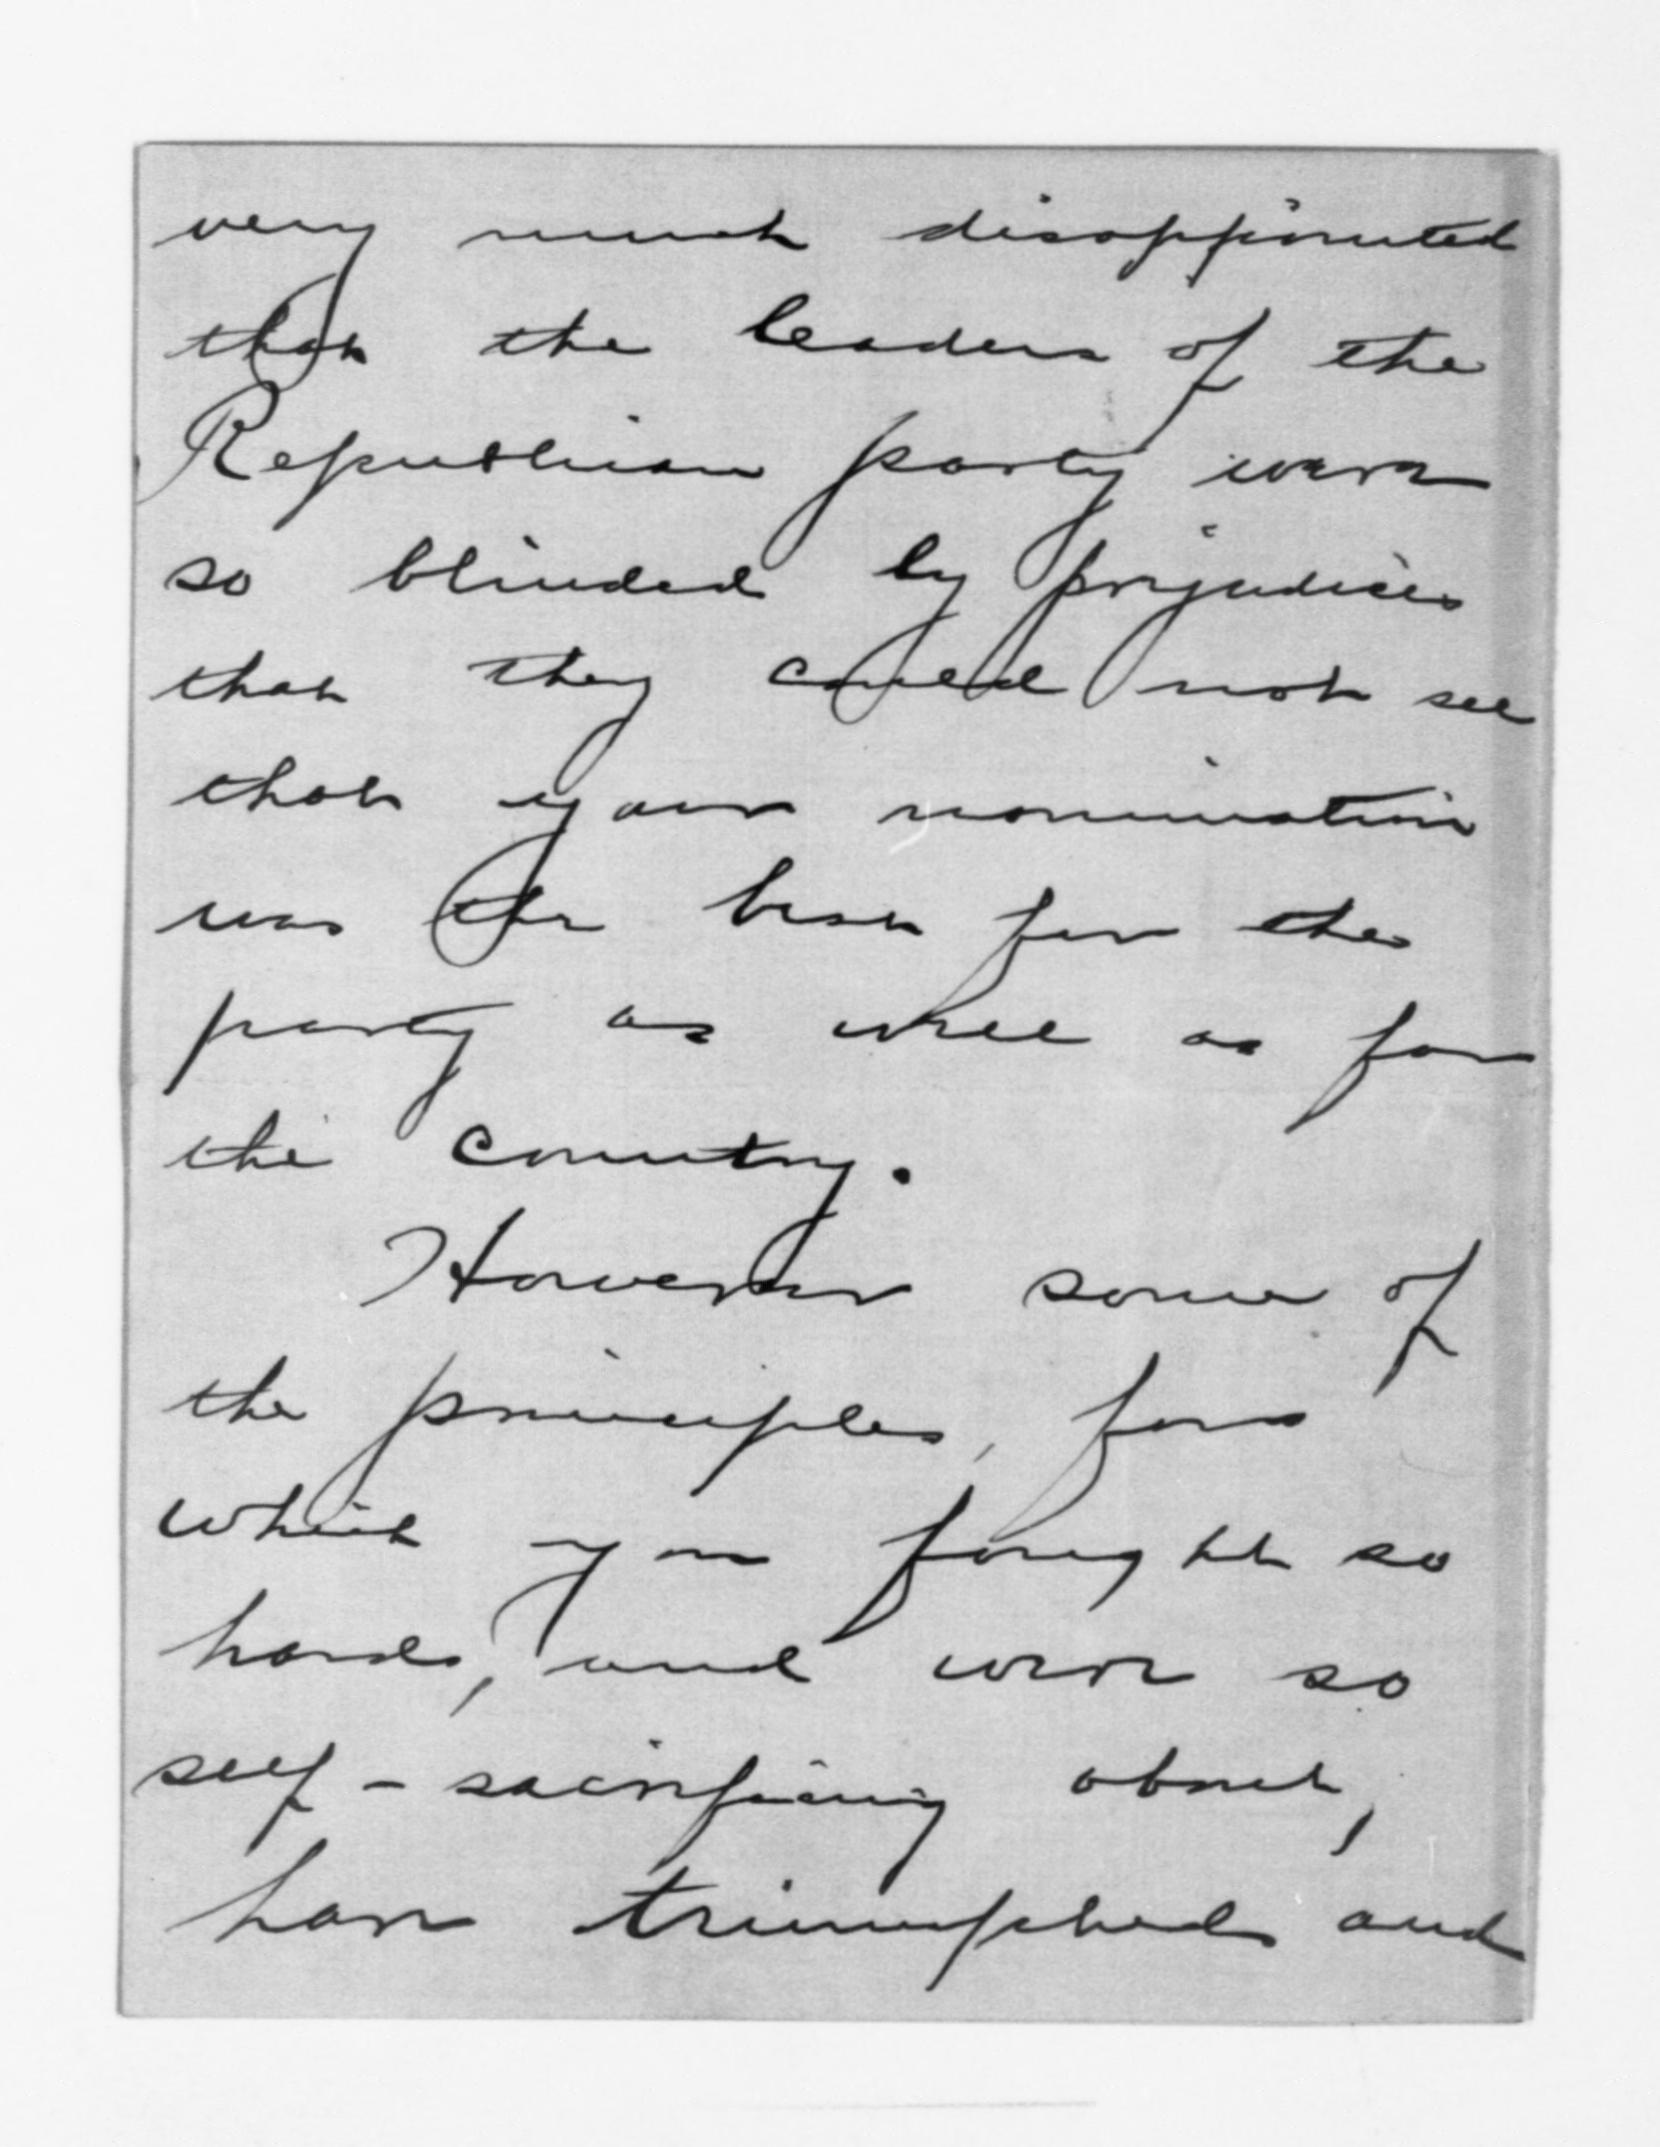 very much disappointed
that the leaders of the
Republican party were
so blinded by prejudices
that they could not see
that your nomination
was the best for the
party as well as for
the country.
However some of
the principles, for
which you fought so
hard, and were so
self-sacrificing about,
have triumphed and